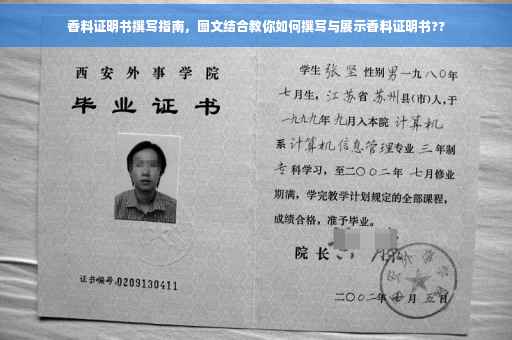 香料证明书撰写指南，图文结合教你如何撰写与展示香料证明书??
西安外事学院
毕业证书
证书编号:0209130411
学生 张坚 性别 男 一九八〇年
七月生，江苏省 苏州 县(市)人,于
一九九九年 九月入本院 计算机
系 计算机信息管理 专业 三 年制
专 科学习，至二〇〇二年 七月修业
期满，学完教学计划规定的全部课程，
成绩合格，准予毕业。
院长
二〇〇二年 月 五日